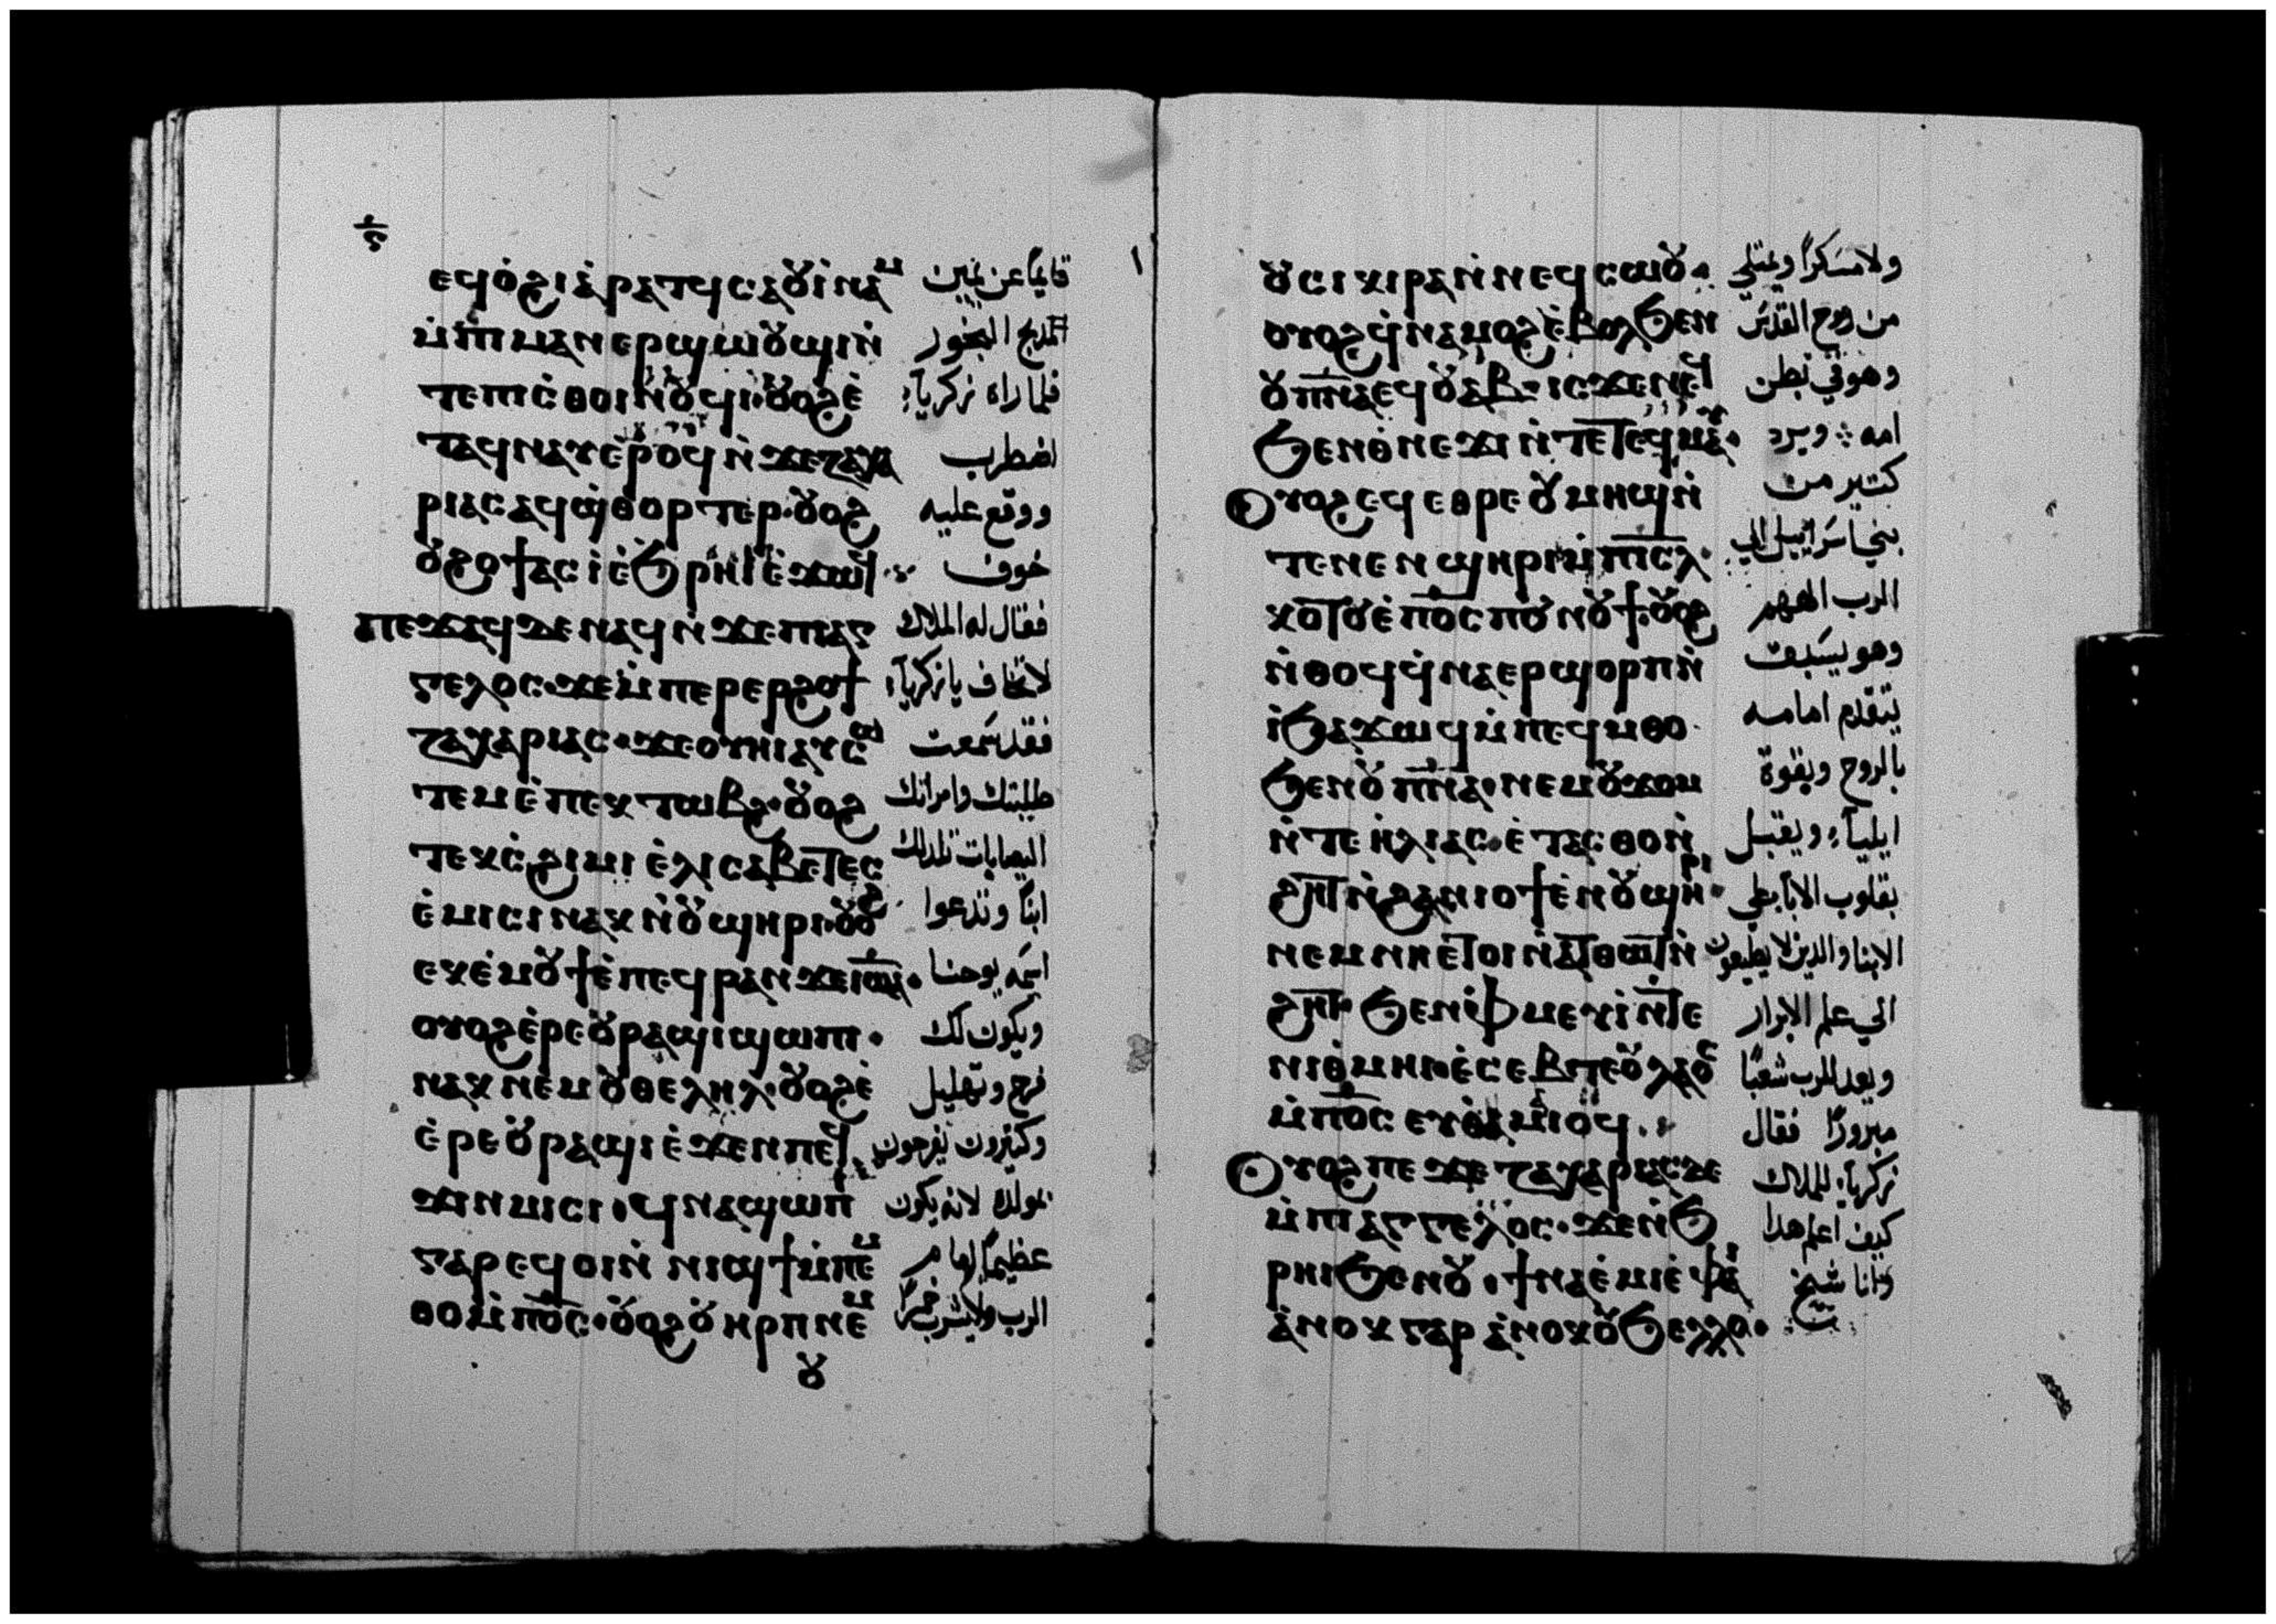 ⲋ
ⲉϥⲟ̇ϩⲓⲁ̇ⲣⲁⲧϥⲥⲁⲟⲩⲓ̇ⲛⲁⲙ قايمًا عن يمين
ⲙ̇ⲡⲓⲙⲁⲛⲉⲣϣⲱⲟⲩϣⲓⲛ̇ المدبح البخور
ⲧⲉⲡⲓⲥ̇ⲑⲟⲓⲛⲟⲩϥⲓ·ⲟⲩⲟϩⲉ̇ فلما راه زكريآء
ⲧⲁϥⲛⲁⲩⲉ̇ⲣⲟϥⲛ̇ϫⲉⲍⲁⲭⲁ اضطرب
ⲣⲓⲁⲥⲁϥϣ̇ⲑⲟⲣⲧⲉⲣ·ⲟⲩⲟϩ ووقع عليه
ⲟⲩϩⲟϯⲁⲥⲓ̇ⲉ̇ϧⲣⲏⲓⲉ̇ϫⲱϥ خوف
ⲡⲉϫⲁϥϫⲉⲛⲁϥⲛ̇ϫⲉⲡⲓⲁⲅ فقال له الملاك
ⲅⲉⲗⲟⲥ·ϫⲉⲙ̇ⲡⲉⲣⲉⲣϩⲟϯ لا تخاف يا زكريآء
ⲍⲁⲭⲁⲣⲓⲁⲥ·ϫⲉⲟⲩⲏⲓⲁⲩⲥⲱ فقد سمعت
ⲧⲉⲙⲉ̇ⲡⲉⲕⲧⲱⲃϩ·ⲟⲩⲟϩ طلبتك وامراتك
ⲧⲉⲕⲥ̇ϩⲓⲙⲓⲉ̇ⲗⲓⲥⲁⲃⲉⲧⲉⲥ اليصابات تلد لك
ⲉ̇ⲙⲓⲥⲓⲛⲁⲕⲛ̇ⲟⲩϣⲏⲣⲓ·ⲟⲩⲟϩ ابنًا وتدعوا
ⲉⲕⲉ̇ⲙⲟⲩϯⲉ̇ⲡⲉϥⲣⲁⲛϫⲉⲓⲱⲁ· اسمه يوحنا
ⲟⲩⲟϩⲉ̇ⲣⲉⲟⲩⲣⲁϣⲓϣⲱⲡⲓ· ويكون لك
ⲛⲁⲕⲛⲉⲙⲟⲩⲑⲉⲗⲏⲗ·ⲟⲩⲟϩⲉ̇ فرح وتهليل
ⲉ̇ⲣⲉⲟⲩⲣⲁϣⲓⲉ̇ϫⲉⲛⲡⲉϥ وكثيرون يفرحون
ϫⲓⲛⲙⲓⲥⲓ·ϥⲛⲁϣⲱⲡⲓ بمولده لانه يكون
ⲅⲁⲣⲉϥⲟⲓⲛ̇ⲛⲓϣϯⲙ̇ⲡⲉⲙ عظيمًا امام
ⲑⲟⲙ̇ⲡⲟ̅ⲥ̅·ⲟⲩⲟϩⲟⲩⲏⲣⲡⲛⲉⲙ الرب ولا يشرب خمرًا
ⲟⲩ
ⲟⲩⲥⲓⲕⲓⲣⲁⲛ̇ⲛⲉϥⲥⲱⲟⲩ· ولا مسكرًا ويمتلي
ⲟⲩⲟϩϥ̇ⲛⲁⲙⲟϩⲉ̇ⲃⲟⲗϧⲉⲛ من روح القدس
ⲟⲩⲡ̅ⲛ̅ⲁ̅ⲉϥⲟⲩⲁⲃ·ⲓⲥϫⲉⲛⲉϥ وهو في بطن
ϧⲉⲛⲑ̇ⲛⲉϫⲓⲛ̇ⲧⲉⲧⲉϥⲙⲁⲩ· امه ܀ ويرد
ⲟⲩⲟϩⲉϥⲉⲑⲣⲉⲟⲩⲙⲏϣⲛ̇ كتير من
ⲧⲉⲛⲉⲛϣⲏⲣⲓⲙ̇ⲡⲓ̅ⲥ̅ⲗ̅· بني اسراييل الي
ⲕⲟⲧⲟⲩⲉ̇ⲡⲟ̅ⲥ̅ⲡⲟⲩⲛⲟⲩϯ·ⲟⲩⲟϩ الرب الاههم
ⲛ̇ⲑⲟϥϥ̇ⲛⲁⲉⲣϣⲟⲣⲡⲛ̇ وهو يسبق
ⲓ̇ϧⲁϫⲱϥⲙ̇ⲡⲉϥⲙⲑⲟ· يتقدم امامه
ϧⲉⲛⲟⲩⲡ̅ⲛ̅ⲁ̅·ⲛⲉⲙⲟⲩϫⲟⲙ بالروح وبقوة
ⲛ̇ⲧⲉⲏ̇ⲗⲓⲁⲥ·ⲉ̇ⲧⲁⲥⲑⲟⲛ̇ ايليآء ويقبل
ϩⲏⲧⲛ̇ϩⲁⲛⲓⲟϯⲉ̇ⲛⲟⲩϣⲏⲣⲓ· بقلوب الابا علي
ⲛⲉⲙⲛⲏⲉⲧⲟⲓⲛ̇ⲁⲧⲑⲱⲧⲛ̇ الابنا والدين لا يطيعون
ϩⲏⲧ·ϧⲉⲛⲫ̇ⲙⲉⲩⲓ̇ⲛ̇ⲧⲉ الي علم الابرار
ⲛⲓⲑ̇ⲙⲏⲓ·ⲉ̇ⲥⲉⲃⲧⲉⲟⲩⲗⲁⲟⲥ ويعد للرب شعبًا
ⲙ̇ⲡⲟ̅ⲥ̅ⲉⲩⲑⲁⲙⲓⲟϥ· مبرورًا فقال
ⲟⲩⲟϩⲡⲉϫⲉⲍⲁⲭⲁⲣⲓⲁⲥϫⲉ زكريآء للملاك
ⲙ̇ⲡⲓⲁⲅⲅⲉⲗⲟⲥ·ϫⲉⲛ̇ϧ كيف اعلم هدا
ⲣⲏⲓϧⲉⲛⲟⲩ·ϯⲛⲁⲉ̇ⲙⲓⲉ̇ⲫⲁⲓ وانا شيخ
ⲁ̇ⲛⲟⲕⲅⲁⲣⲁ̇ⲛⲟⲕⲟⲩϧⲉⲗⲗⲟ·